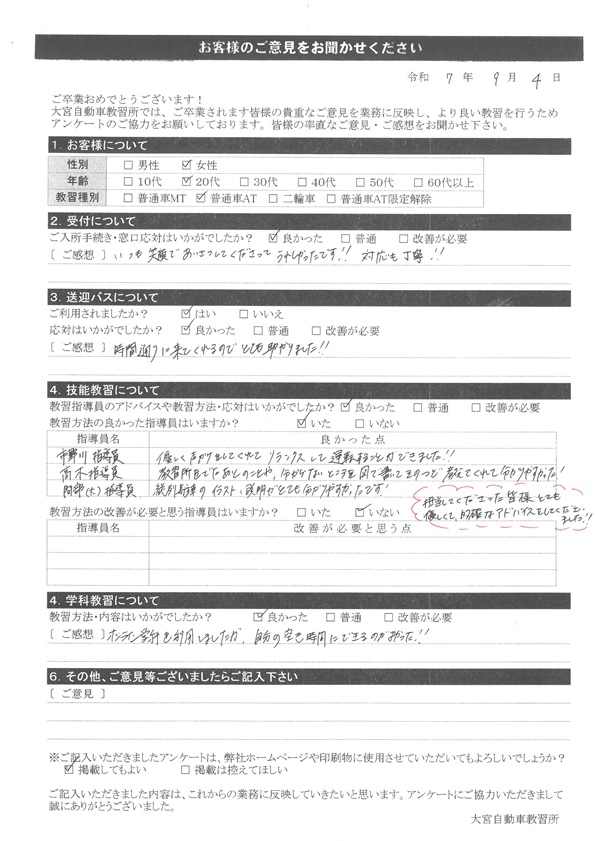 お客様のご意見をお聞かせください
令和 7 年 9 月 4 日
ご卒業おめでとうございます！
大宮自動車教習所では、ご卒業されます皆様の貴重なご意見を業務に反映し、より良い教習を行うため
アンケートのご協力をお願いしております。皆様の率直なご意見・ご感想をお聞かせ下さい。
1. お客様について
性別 □ 男性 ☑ 女性
年齢 □ 10代 ☑ 20代 □ 30代 □ 40代 □ 50代 □ 60代以上
教習種別 □ 普通車MT ☑ 普通車AT □ 二輪車 □ 普通車AT限定解除
2. 受付について
ご入所手続き・窓口応対はいかがでしたか？ ☑ 良かった □ 普通 □ 改善が必要
[ ご感想 ] いつも笑顔であいさつしてくださって うれしかったです!! 対応も丁寧!!
3. 送迎バスについて
ご利用されましたか？ ☑ はい □ いいえ
応対はいかがでしたか？ ☑ 良かった □ 普通 □ 改善が必要
[ ご感想 ] 時間通りに来てくれるのでとても助かりました!!
4. 技能教習について
教習指導員のアドバイスや教習方法・応対はいかがでしたか？ ☑ 良かった □ 普通 □ 改善が必要
教習方法の良かった指導員はいますか？ ☑ いた □ いない
指導員名 良かった点
市野川 指導員 優しく声かけをしてくれて リラックスして運転することができました!!
高木 指導員 教習所をでたあとのことや、分からないところを図で書いて 教えてくれて分かりやすかった!
阿部(大) 指導員 イラスト、説明がとても分かりやすかったです!
担当してくださった皆様とても
優しくて、的確なアドバイスをしてくださいました!!
教習方法の改善が必要と思う指導員はいますか？ □ いた ☑ いない
指導員名 改善が必要と思う点
4. 学科教習について
教習方法・内容はいかがでしたか？ ☑ 良かった □ 普通 □ 改善が必要
[ ご感想 ] オンライン学科を利用しましたが、自分の空き時間にできるのがよかった!!
6. その他、ご意見等ございましたらご記入下さい
[ ご意見 ]
※ご記入いただきましたアンケートは、弊社ホームページや印刷物に使用させていただいてもよろしいでしょうか？
☑ 掲載してもよい □ 掲載は控えてほしい
ご記入いただきました内容は、これからの業務に反映していきたいと思います。アンケートにご協力いただきまして
誠にありがとうございました。
大宮自動車教習所